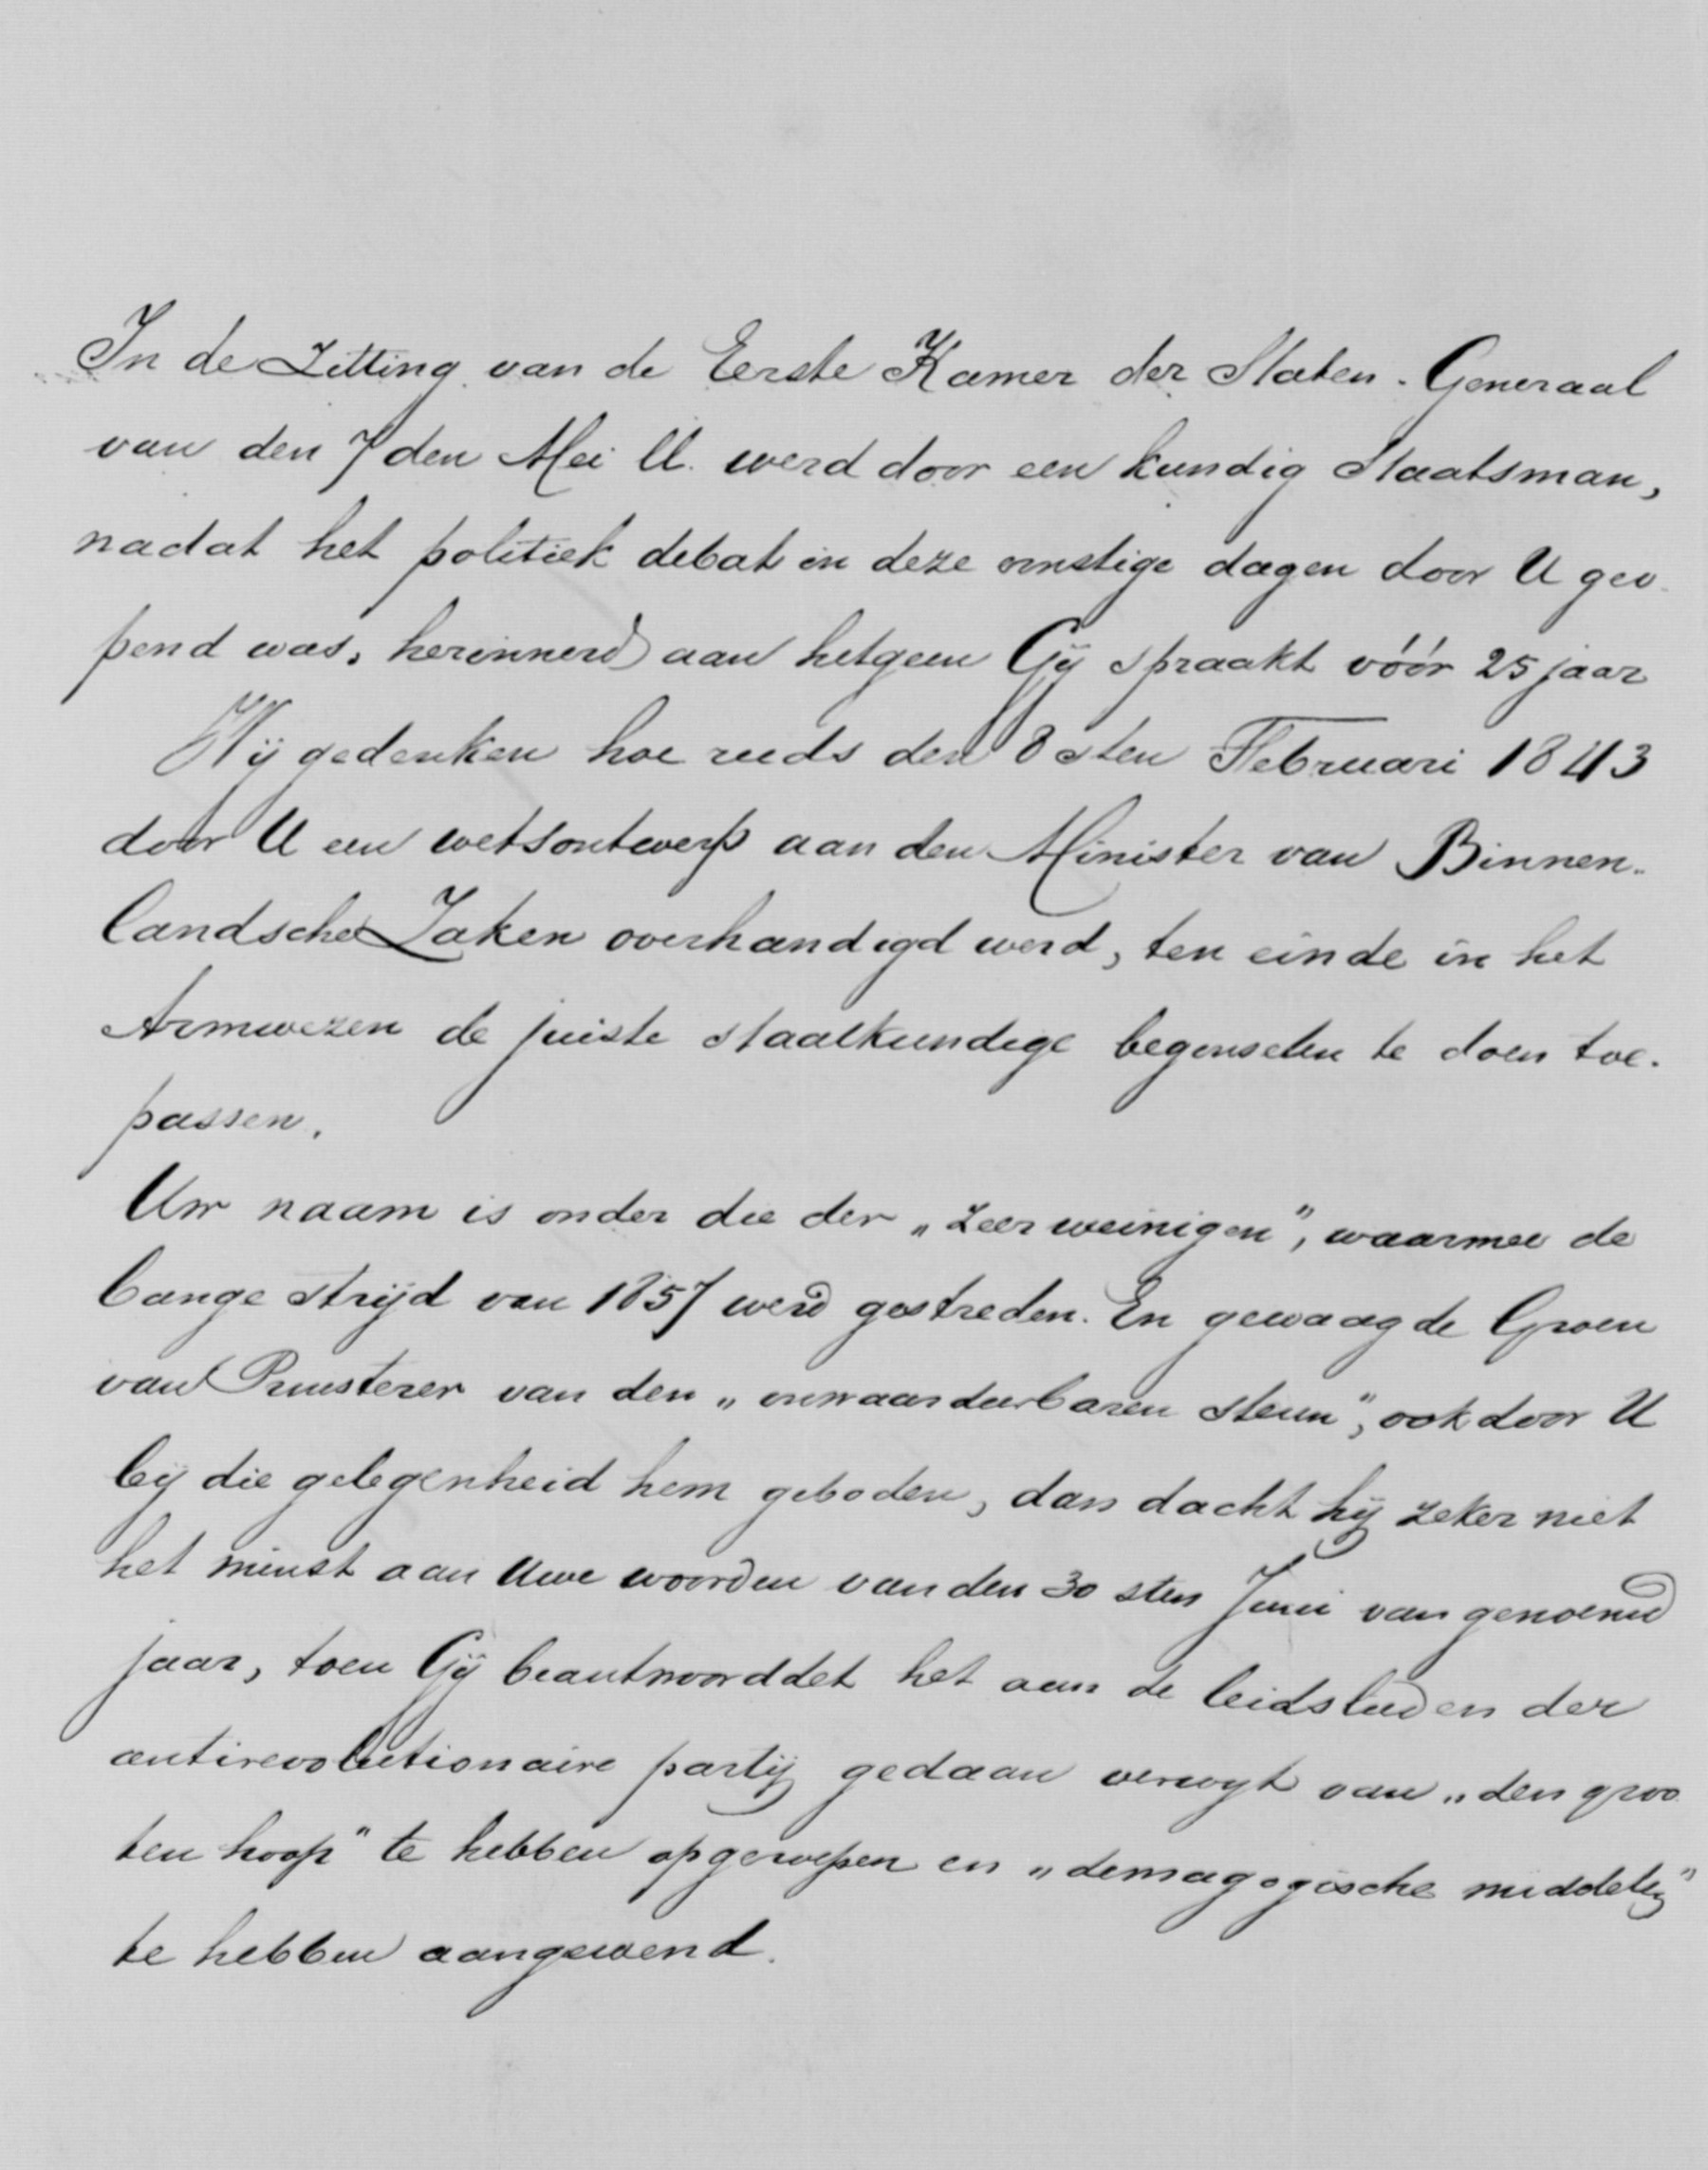 In de Zitting van de Eerste Kamer der Staten-Generaal
van den 7den Mei ll. werd door een kundig Staatsman,
nadat het politiek debat in deze ernstige dagen door U geo-
pend was, herinnerd aan hetgeen Gij spraakt vóór 25 jaar
Wij gedenken hoe reeds den 8sten Februari 1843
door U een wetsontwerp aan den Minister van Binnen-
landsche Zaken overhandigd werd, ten einde in het
Armwezen de juiste staatkundige beginselen te doen toe-
passen.
Uw naam is onder die der „zeer weinigen", waarmee de
bange strijd van 1857 werd gestreden. En gewaagde Groen
van Prinsterer van den „onwaardeerbaren steun", ook door U
bij die gelegenheid hem geboden, dan dacht hij zeker niet
het minst aan Uwe woorden van den 30sten Juni van genoemd
jaar, toen Gij beantwoorddet het aan de leidslieden der
antirevolutionaire partij gedaan verwijt van „den groo
ten hoop" te hebben opgeroepen en „demagogische middelen"
te hebben aangewend.